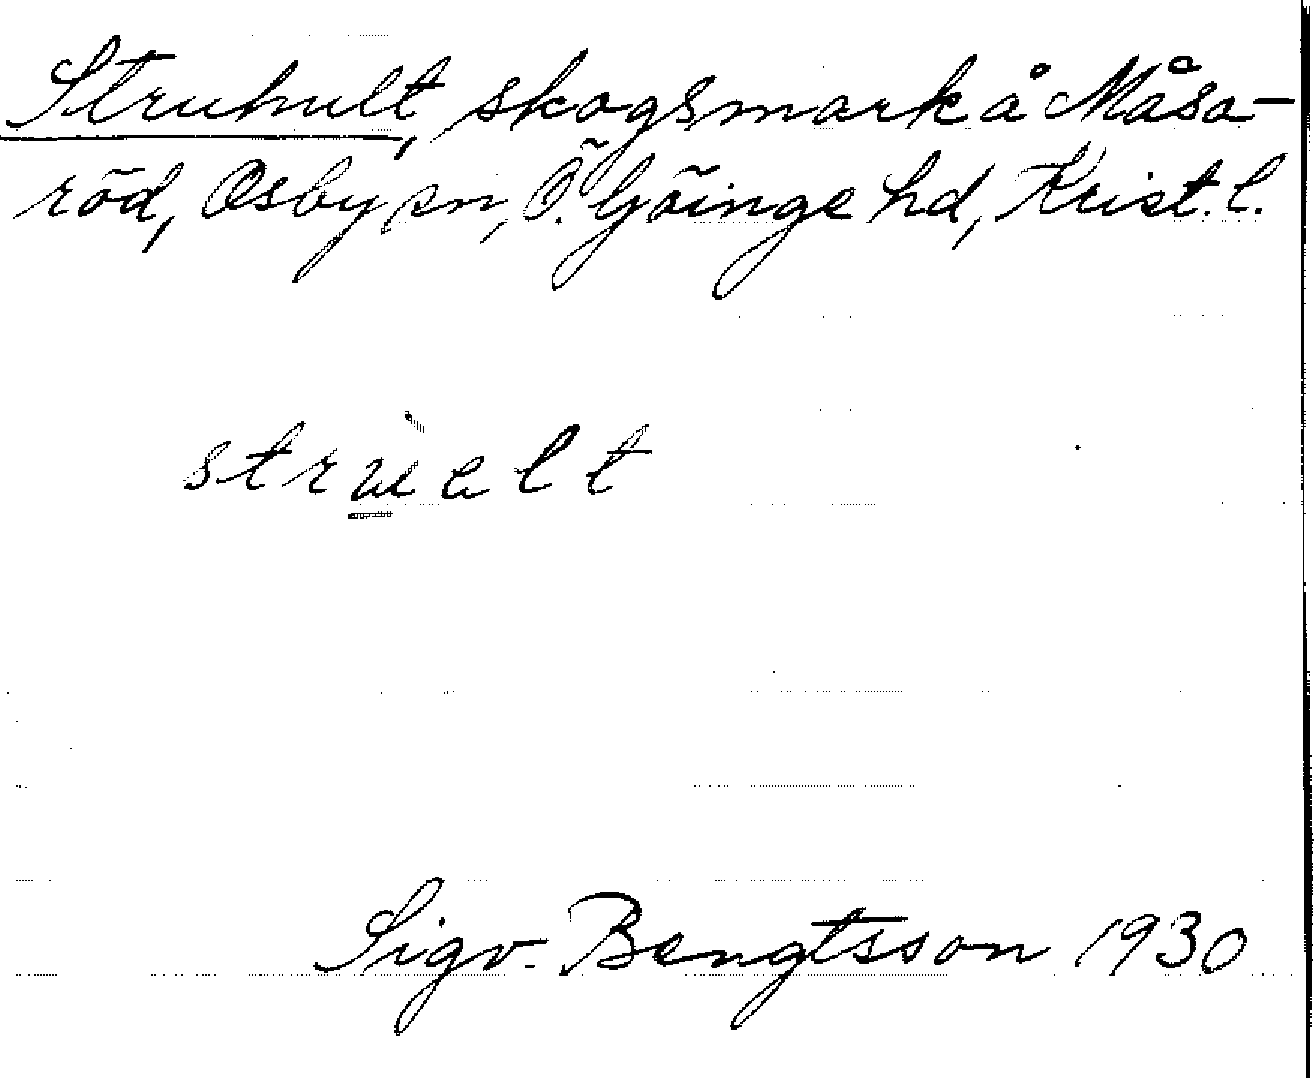 Struhult, skogsmark å Måsa-
röd, Osby sn, Ö. Göinge hd, Krist. l.
strùelt
Sigv. Bengtsson 1930